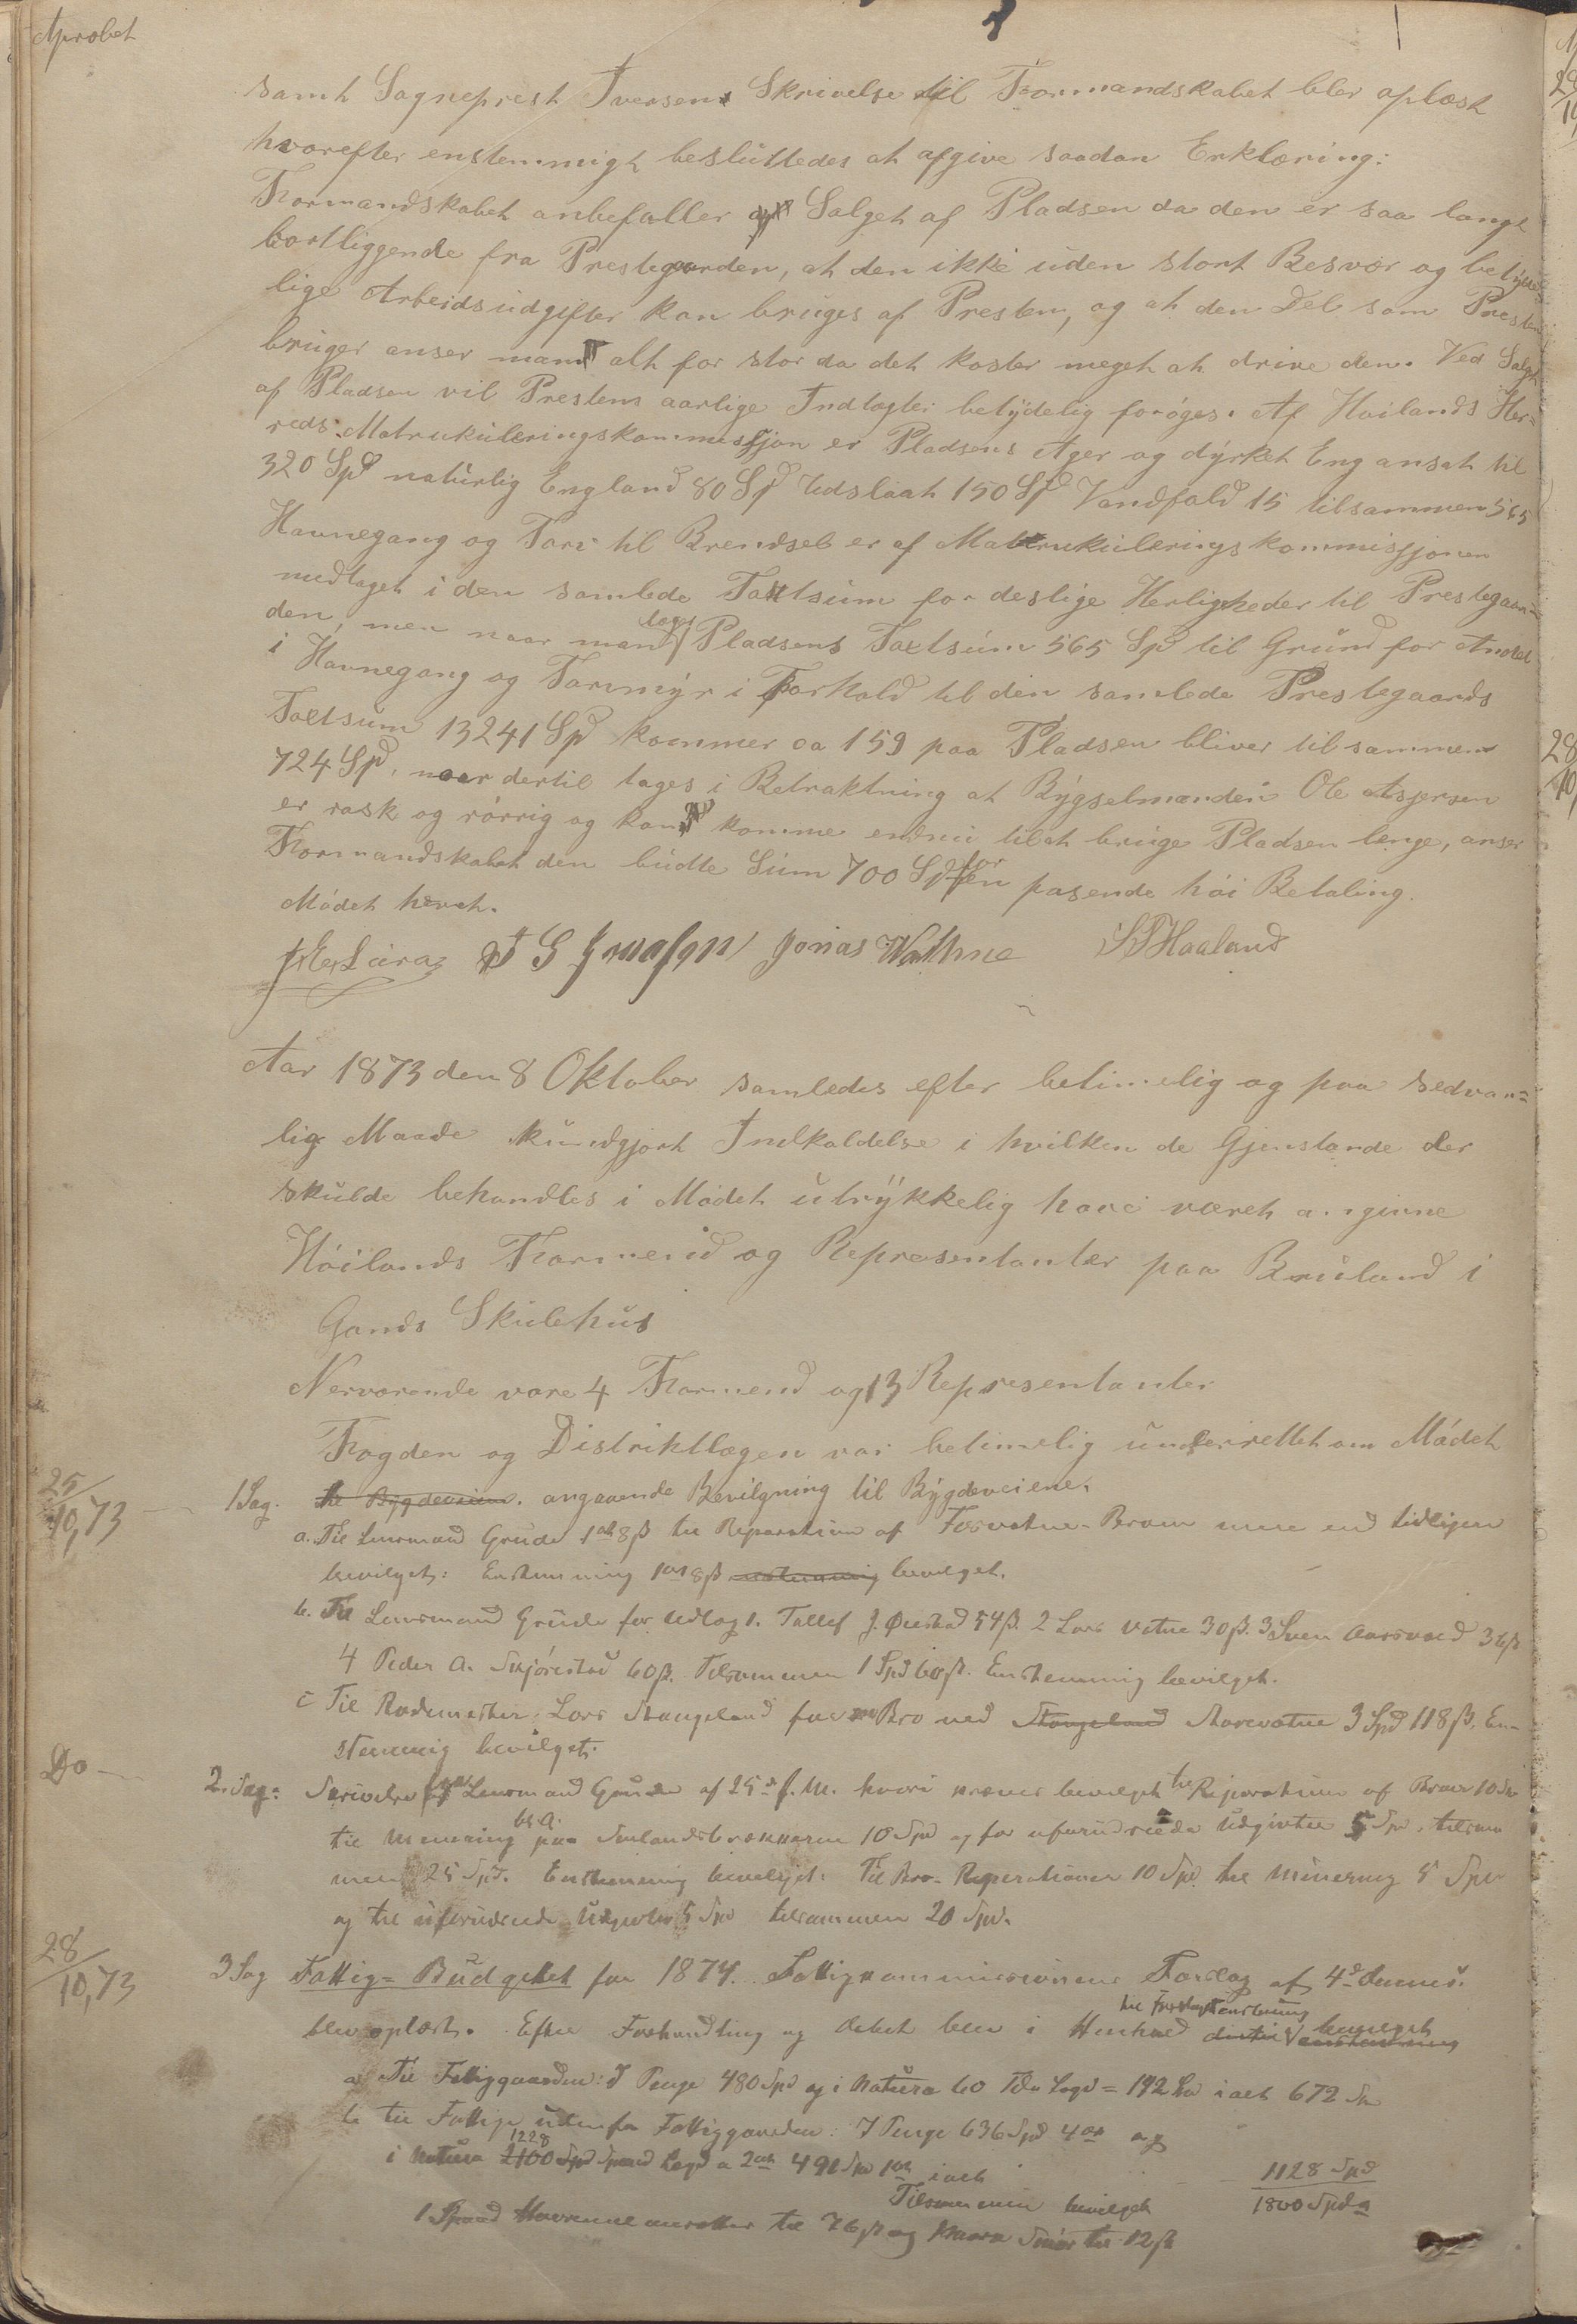 Aprobet
samt Sogneprest Iversens Skrivelse til Formandskabet blev oplæst
hvorefter enstemmigt besluttedes at afgive saadan Erklæring:
Formandskabet anbefaller Salget af Pladsen da den er saa langt
bortliggende fra Prestegaarden, at den ikke uden stort Besvær og betyde
lige Arbeidsudgifter kan bruges af Presten, og at den Del som Presten
bruger anser man alt for stor da det koster meget at drive den. Ved Salget
af Pladsen vil Prestens aarlige Indtægter betydelig forøges. Af Høilands Her=
reds Matrukuleringskommissjon er Pladsens Ager og dyrket Eng ansat til
320 Spd naturlig England 80 Spd Udslaat 150 Spd Vandfald 15 tilsammen 565
Havnegang og Torv til Brendsel er af Matrukuleringskommissjonen
medtaget i den samlede Taxtsum for deslige Herligheder til Prestegaar=
den, men naar man tager Pladsens Taxtsum 565 Spd til Grund for Andel
i Havnegang og Tormyr i Forhold til den samlede Prestegaards
Taxtsum 13241 Spd kommer ca 159 paa Pladsen bliver tilsammen
724 Spd, naar dertil tages i Betraktning at Bygselmanden Ole Asjersen
er rask og rørrig og kan komme endnu til at bruge Pladsen lenge, anser
Formandskabet den budte Sum 700 Spd for en pasende høi Betaling.
Mødet hevet.
Lura T G Jonasson Jonas Wathne Haaland
Aar 1873 den 8 Oktober samledes efter betimelig og paa sedvan=
lig Maade kundgjort Indkaldelse i hvilken de Gjenstande der
skulde behandles i Mødet utrykkelig have været angivne
Høilands Formend og Representanter paa Bruland i
Gands Skulehus
Nerværende vare 4 Formend og 13 Representanter
Fogden og Distriktlægen var betimelig underrettet om Mødet
25/10,73
1 Sag. angaaende Bevilgning til Bygdeveiene.
a. Til Lensmand Grude 1 ort 8 ß til Reparation af Broen mere end tidligere
bevilget: Enstemmig 1 ort 8 ß bevilget.
b. Til Lensmand Grude for Udlæg 1. Tallef J. 54 ß. 2 Lars Vatne 30 ß. 3 Sven Aarsvold 36 ß
4 Peder A. Skjørestad 60 ß. Tilsammen 1 Spd 60 ß. Enstemmig bevilget.
c Til Rodemester Lars Stangeland for Bro ved 3 Spd 118 ß. En-
stemmig bevilget.
Do
2. Sag: Skrivelse fra Lensmand Grude af 25de f. M. hvori kræves bevilget til Reparation af Broer 10 Spd
til Minering bl. A. paa 10 Spd og for uforudseede Udgivter 5 Spd, tilsam
men 25 Spd. Enstemmig bevilget: Til Bro-Reperationer 10 Spd til Minering 5 Spd
og til uforudseede Udgivter 5 Spd tilsammen 20 Spd.
28/10,73
3 Sag Fattig=Budgettet for 1874. Fattigkommissionens Forslag af 4de
blev oplæst. Efter Forhandling og Debat blev i Henhold til Forslaget enstemmig bevilget
a Til Fattiggaarden: I Penge 480 Spd og i Natura 60 Tdr = 192 Spd ialt 672 Spd
b til Fattige udenfor Fattiggaarden: I Penge 636 Spd 4 ort og
i Natura 1228 Spand a 2 ort 491 Spd 1 ort ialt 1128 Spd
Tilsammen bevilget 1800 Spd
1 Spand til 76 ß og Smør til 12 ß